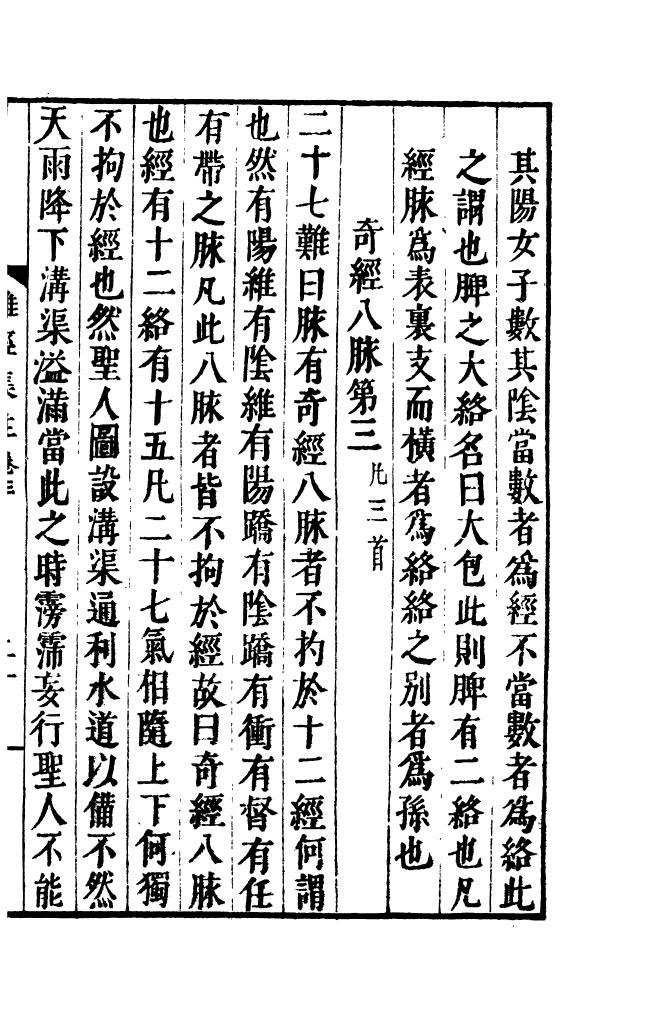 其陽女子數其陰當數者爲經不當數者爲絡此
之謂也脾之大絡名曰大包此則脾有二絡也凡
經脉爲表裏支而橫者爲絡絡之别者爲孫也
奇經八脉第三凡三首
二十七難曰脉有奇經八脉者不拘於十二經何謂
也然有陽維有陰維有陽蹻有陰蹻有衝有督有任
有帶之脉凡此八脉者皆不拘於經故曰奇經八脉
也經有十二絡有十五凡二十七氣相隨上下何獨
不拘於經也然聖人圖設溝渠通利水道以備不然
天雨降下溝渠溢滿當此之時霶霈妄行聖人不能